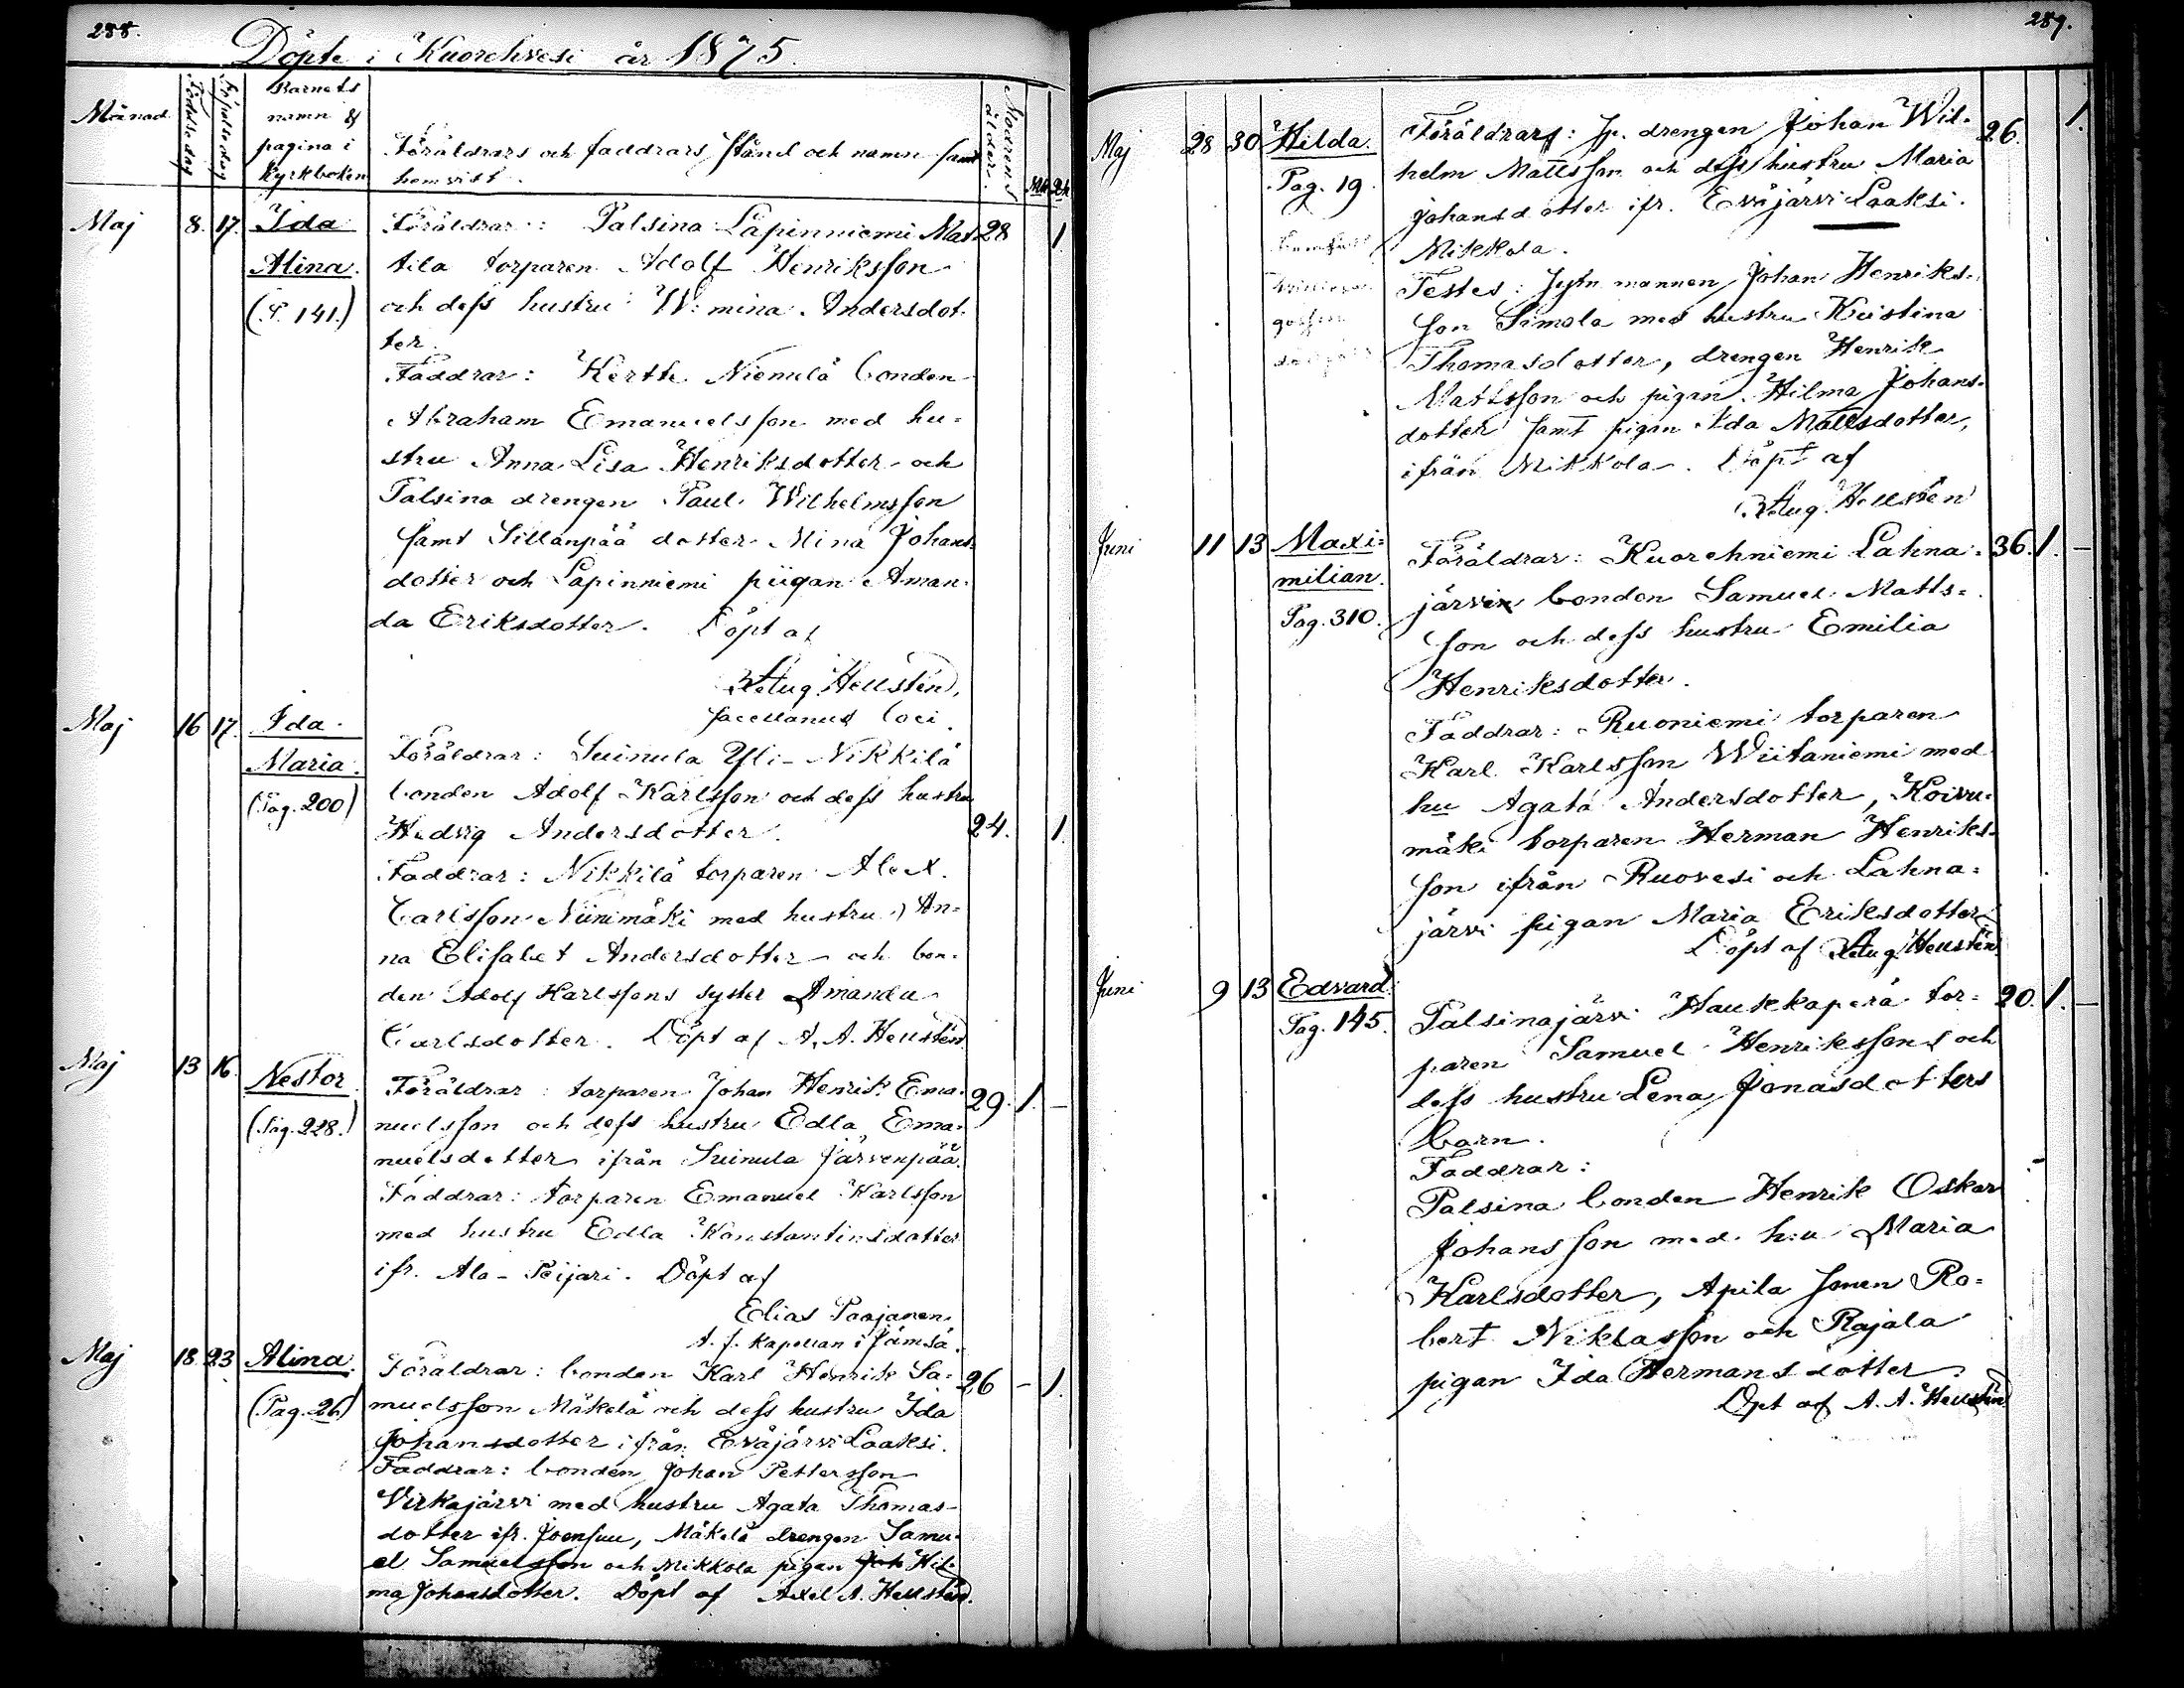 288.
Döpte i Kuorehvesi år 1875.
Månad
Födelse dag
Döpelse dag
Barnets
namn &
pagina i
kyrkboken
Föräldrars och faddrars stånd och namn samt
hemvist.
Modrens
ålder.
Mk
Qk
Maj 8. 17. Ida
Alina.
(P. 141.)
Föräldrar: Palsina Lapinniemi Mat- 28 1.
tila torparen Adolf Henriksson
och dess hustru W:mina Andersdot-
ter.
Faddrar: Kertte Niemelä bonden
Abraham Emanuelsson med hu-
stru Anna Lisa Henriksdotter och
Palsina drengen Paul Wilhelmsson
samt Sillanpää dotter Mina Johans-
dotter och Lapinniemi piigan Aman-
da Eriksdotter. Döpt af
Aug. Hellstén,
sacellanus loci.
Maj 16 17. Ida
Maria.
(Pag. 200)
Föräldrar: Suinula Yli-Nikkilä
bonden Adolf Karlsson och dess hustru
Hedvig Andersdotter. 24. 1.
Faddrar: Nikkilä torparen Alex.
Carlsson Niinimäki med hustru An-
na Elisabet Andersdotter och bon-
den Adolf Karlssons syster Amanda
Carlsdotter. Döpt af A. A. Hellstén
Maj 13 16. Nestor.
(Pag. 228.)
Föräldrar: torparen Johan Henrik Ema- 29. 1. –
nuelsson och dess hustru Edla Ema-
nuelsdotter ifrån Suinula Järvenpää.
Faddrar: torparen Emanuel Karlsson
med hustru Edla Konstantinsdotter
ifr. Ala-Peijari. Döpt af
Elias Paajanen.
A. f. Kapellan i Jämsä.
Maj 18. 23 Alina.
(Pag. 26)
Föräldrar: bonden Karl Henrik Sa- 26 – 1.
muelsson Mäkelä och dess hustru Ida
Johansdotter ifrån Eväjärvi Laaksi.
Faddrar: bonden Johan Pettersson
Virkajärvi med hustru Agata Thomas-
dotter ifr. Joensuu, Mäkelä drengen Samu-
el Samuelsson och Mikkola pigan Joh Hil-
ma Johansdotter. Döpt af Axel A. Hellstén.
289.
Maj 28 30 Hilda.
Pag. 19.
Föräldrar: Jp. drengen Johan Wil- 26. 1.
helm Mattsson och dess hustru Maria
Johansdotter ifr. Eväjärvi Laaksi.
Mikkola.
Testes: Jytn mannen Johan Henriks-
son Simola med hustru Kristina
Thomasdotter, drengen Henrik
Mattsson och pigan Hilma Johans-
dotter samt pigan Ida Mattsdotter,
ifrån Mikkola. Döpt af
Aug. Hellstén
Juni 11 13 Maxi-
milian.
Pag. 310.
Föräldrar: Kuorehniemi Lahna- 36. 1. –
järvi bonden Samuel Matts-
son och dess hustru Emilia
Henriksdotter.
Faddrar: Ruoniemi torparen
Karl Karlsson Wiitaniemi med
hu Agata Andersdotter, Koivu-
mäki torparen Herman Henriks-
son ifrån Ruovesi och Lahna-
järvi pigan Maria Eriksdotter.
Döpt af Aug. Hellstén
Juni 9 13 Edvard.
Pag. 145.
Palsinajärvi Haukkaperä tor- 20. 1. –
paren Samuel Henrikssons och
dess hustru Lena Jonasdotters
barn.
Faddrar:
Palsina bonden Henrik Oskar
Johansson med h:u Maria
Karlsdotter, Apila sonen Ro-
bert Niklasson och Rajala
pigan Ida Hermansdotter.
Döpt af A. A. Hellstén